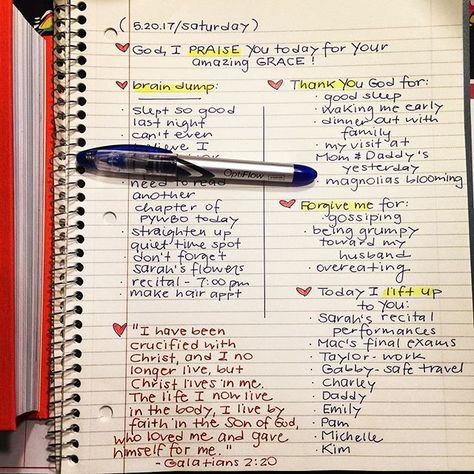 (5.20.17/saturday)
God, I PRAISE You today for your
amazing GRACE!
brain dump:
· slept so good
last night
· can't even
believe I
OptiFlow
· need to read
another
chapter of
PYWBO today
· straighten up
quiet time spot
· don't forget
Sarah's flowers
· recital - 7:00pm
· make hair appt
"I have been
crucified with
Christ, and I no
longer live, but
Christ lives in me.
The life I now live
in the body, I live by
faith in the Son of God,
who loved me and gave
himself for me."
- Galatians 2:20
Thank You God for:
· good sleep
· waking me early
· dinner out with
family
· my visit at
Mom & Daddy's
yesterday
· magnolias blooming
Forgive me for:
· gossiping
· being grumpy
toward my
husband
· overeating
Today I lift up
to you:
· Sarah's recital
performances
· Mac's final exams
· Taylor - work
· Gabby - safe travel
· Charley
· Daddy
· Emily
· Pam
· Michelle
· Kim